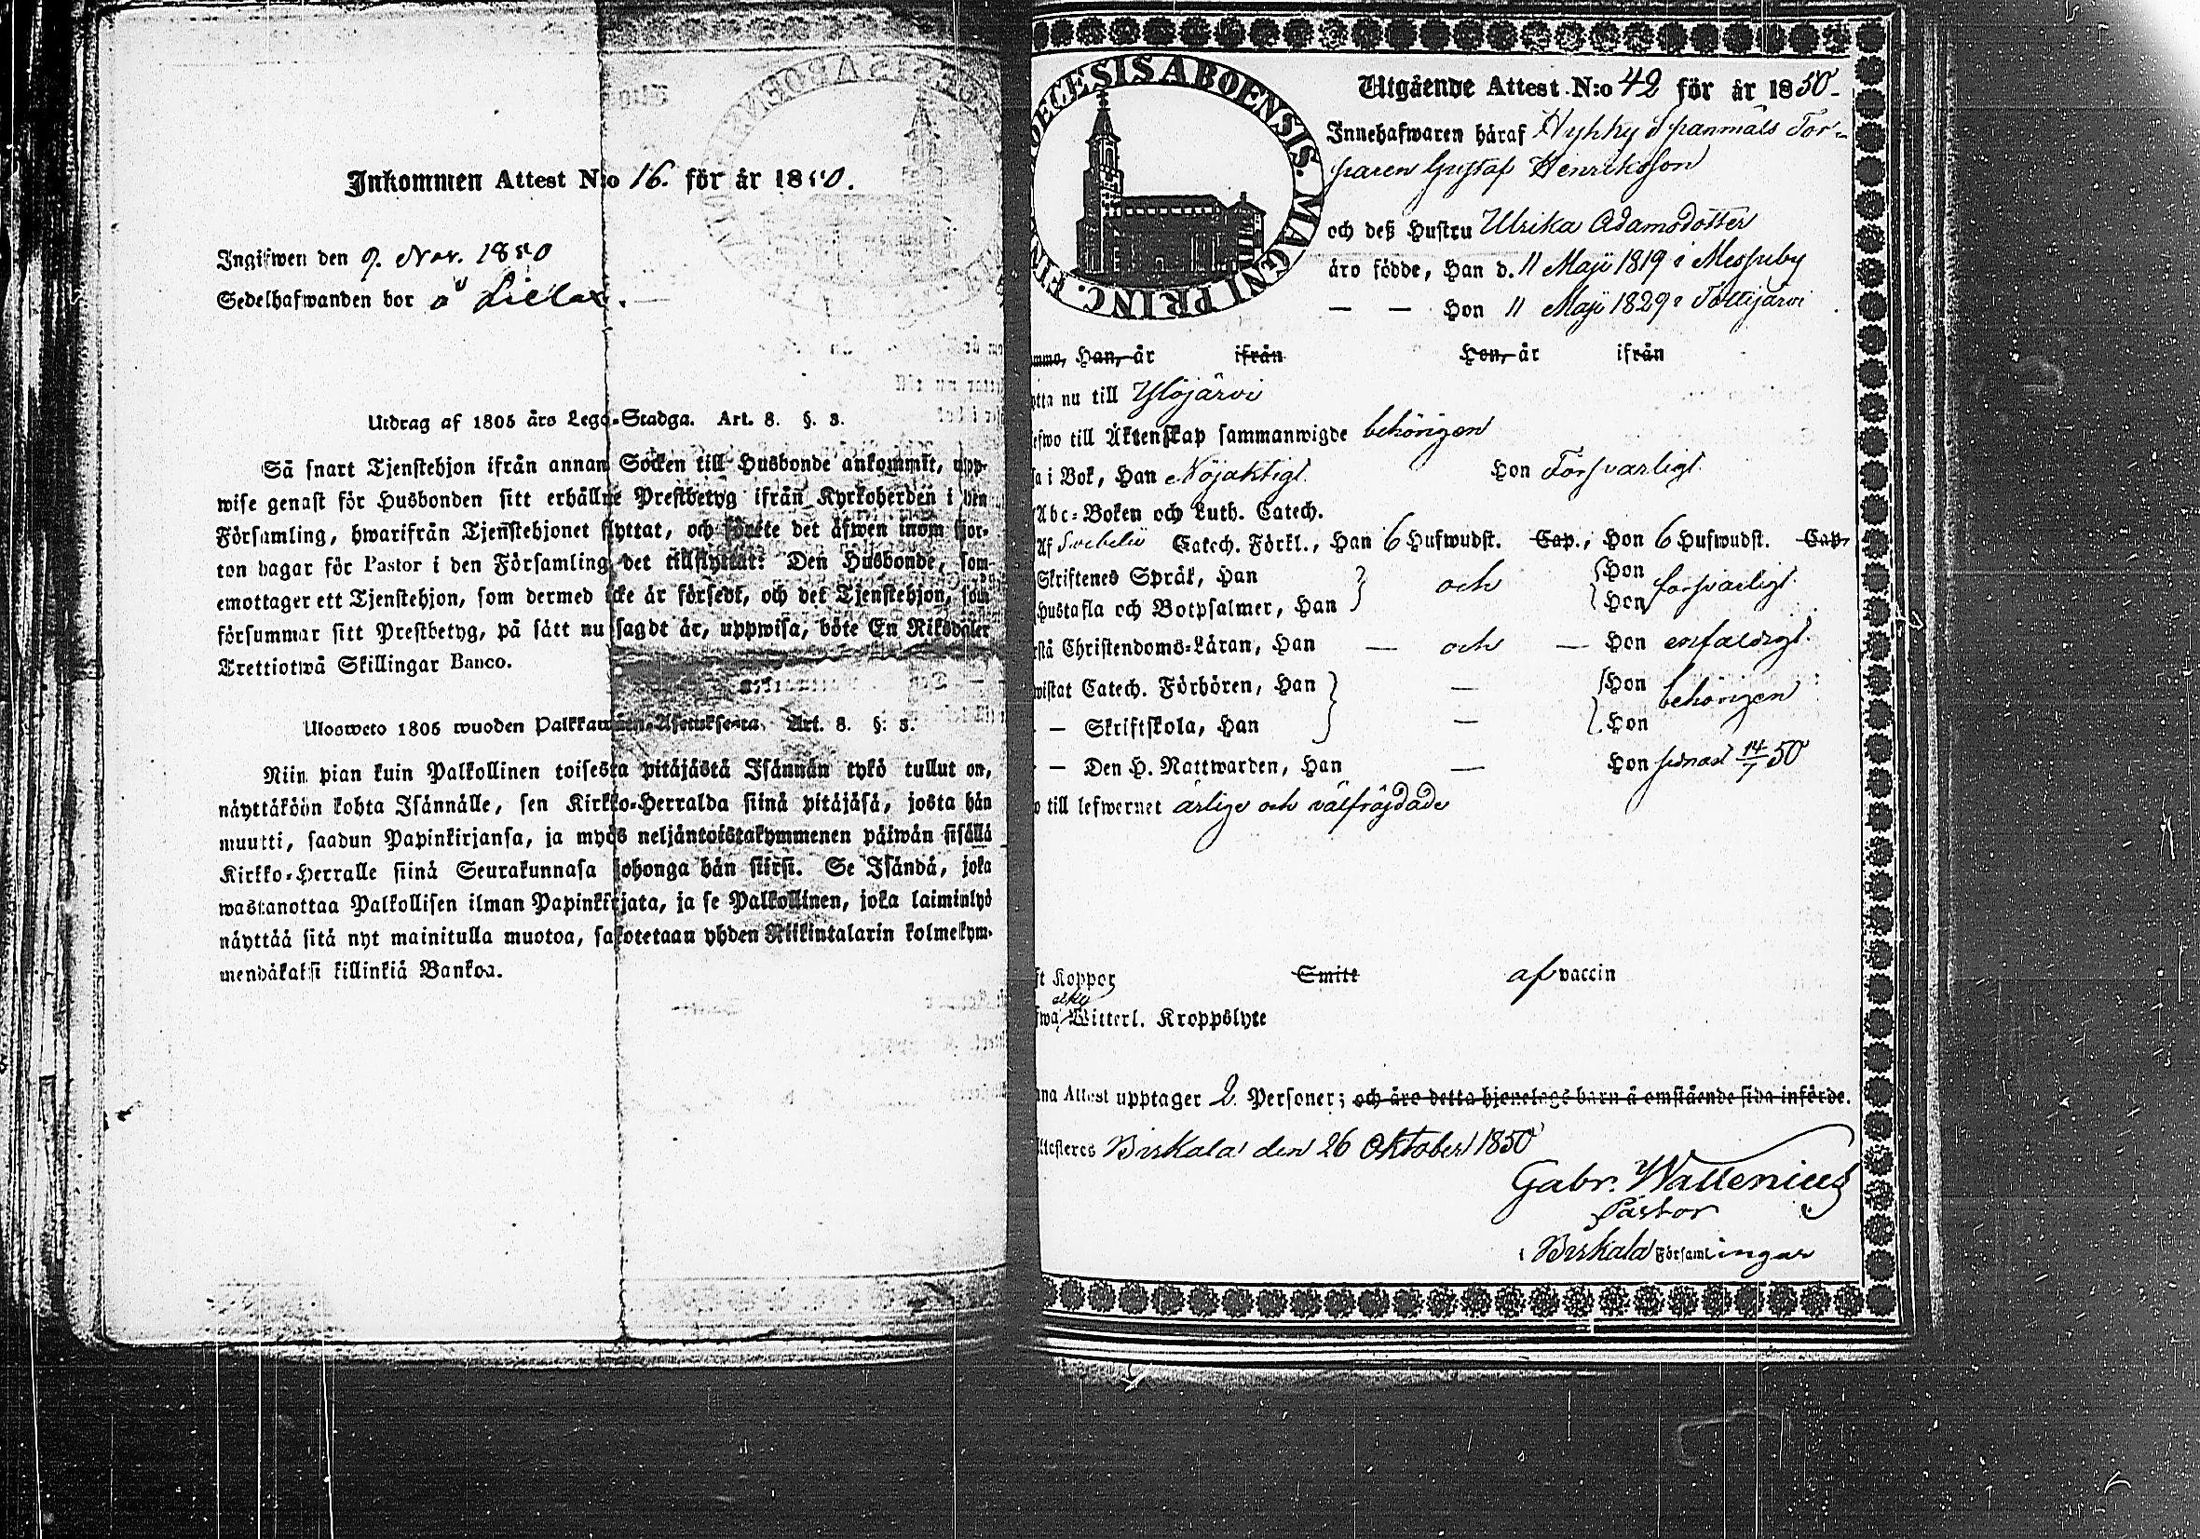 Inkommen Attest N:o 16. för år 1850.
Ingifwen den 9. Nov. 1850
Sedelhafwanden bor å Lielax.
Utdrag af 1805 års Lego-Stadga. Art. 8. §. 3.
Så snart Tjenstehjon ifrån annan Socken till Husbonde ankommit, upp-
wise genast för Husbonden sitt erhållne Prestbetyg ifrån Kyrkoherden i den
Församling, hwarifrån Tjenstehjonet flyttat, och förete det äfwen inom fjor-
ton dagar för Pastor i den Församling det tillflyttat: Den Husbonde, som
emottager ett Tjenstehjon, som dermed icke är försedt, och det Tjenstehjon, som
försummar sitt Prestbetyg, på sätt nu sagdt är, uppwisa, böte En Riksdaler
Trettiotwå Skillingar Banco.
Ulosweto 1805 wuoden Palkkawäen-Asetuksesta. Art. 8. §: 3.
Niin pian kuin Palkollinen toisesta pitäjästä Isännän tykö tullut on,
näyttäköön kohta Isännälle, sen Kirkko-Herralda siinä pitäjäsä, josta hän
muutti, saadun Papinkirjansa, ja myös neljäntoistakymmenen päiwän sisällä
Kirkko-Herralle siinä Seurakunnasa johonga hän siirsi. Se Isändä, joka
wastanottaa Palkollisen ilman Papinkirjata, ja se Palkollinen, joka laiminlyö
näyttää sitä nyt mainitulla muotoa, sakotetaan yhden Riikintalarin kolmekym-
mendäkaksi killinkiä Bankoa.
DIOECESIS ABOENSIS. MAGNI PRINC. FIN
Utgående Attest N:o 42 för år 1850-
Innehafwaren häraf Hyhky Spanmåls Tor-
paren Gustaf Henriksson
och deß Hustru Ulrika Adamsdotter
äro födde, Han d. 11 Maji 1819 i Messuby
— — Hon 11 Maji 1829 i Tottijärvi
mmo, Han, är ifrån Hon, är ifrån
otta nu till Ylöjärvi
efwo till Äktenskap sammanwigde behörigen
a i Bok, Han Nöjaktigt. Hon Försvarligt.
Abc-Boken och Luth. Catech.
Af Svebelii Catech. Förkl., Han 6 Hufwudst. Cap., Hon 6 Hufwudst. Cap.
Skriftenes Språk, Han och Hon försvarligt.
Hustafla och Botpsalmer, Han Hon
stå Christendoms-Läran, Han — och — Hon enfaldigt.
wistat Catech. Förhören, Han — Hon behörigen
— Skriftskola, Han — Hon
— Den H. Nattwarden, Han — Hon senast 14/7 50
o till lefwernet ärlige och välfrägdade
ft Koppor Smitt af vaccin
fwa icke Witterl. Kroppslyte
na Attest upptager 2. Personer; och äro detta hjonelags barn å omstående sida införde.
ttesteres Birkala den 26 Oktober 1850
Gabr. Wallenius
Pastor
i Birkala Församlingar